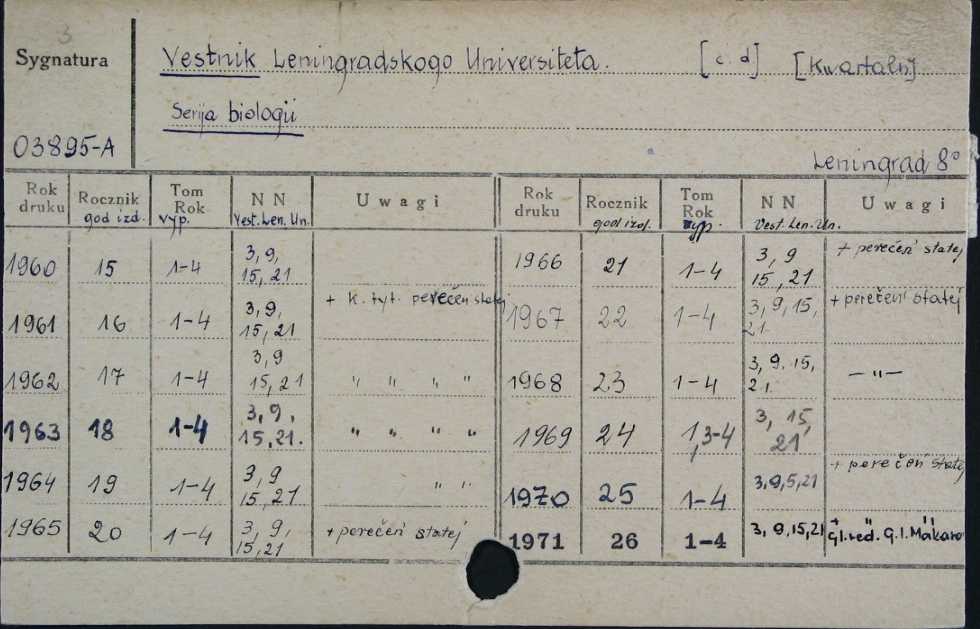 3
Sygnatura
Vestnik Leningradskogo Universiteta. [c. d] [Kwartaln]
Serija biologii
03895-A
Leningrad 8°
Rok druku Rocznik god izd. Tom Rok vyp. N N Vest. Len. Un. Uwagi Rok druku Rocznik god izd. Tom Rok vyp. N N Vest. Len. Un. Uwagi
1960 15 1-4 3, 9, 15, 21
1961 16 1-4 3, 9, 15, 21 + K. tyt. perečen statej
1962 17 1-4 3, 9 15, 21 " " " "
1963 18 1-4 3, 9, 15, 21. " " " "
1964 19 1-4 3, 9 15, 21 " "
1965 20 1-4 3, 9, 15, 21 + perečen' statej
1966 21 1-4 3, 9 15, 21 + perečen' statej
1967 22 1-4 3, 9, 15, 21 + perečen' statej
1968 23 1-4 3, 9. 15, 21 — " —
1969 24 1, 3-4 3, 15, 21
1970 25 1-4 3, 9, 5, 21 + perečen' statej
1971 26 1-4 3, 9, 15, 21 Gl. red. G. I. Makaro